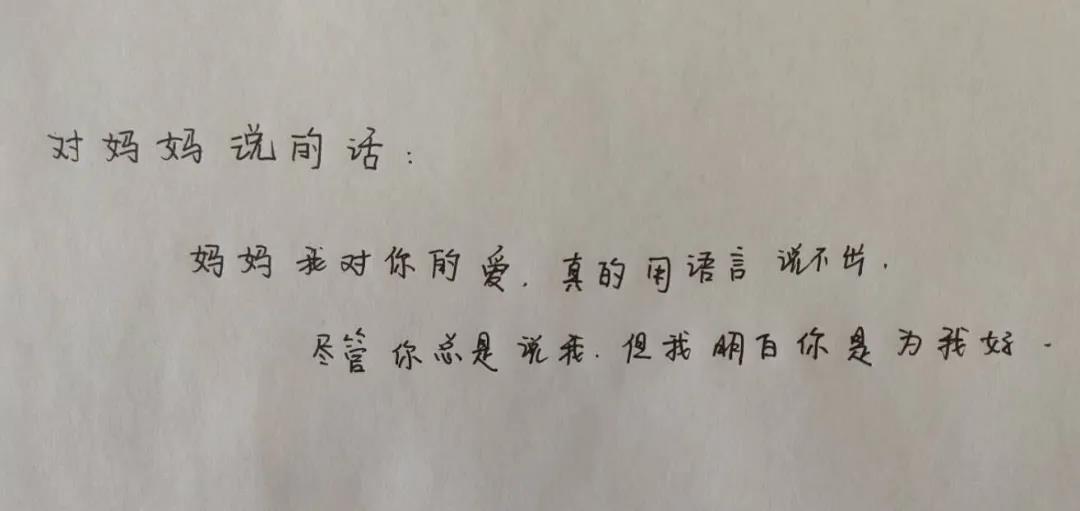 对妈妈说的话：
妈妈我对你的爱．真的用语言说不出．
尽管你总是说我．但我明白你是为我好．